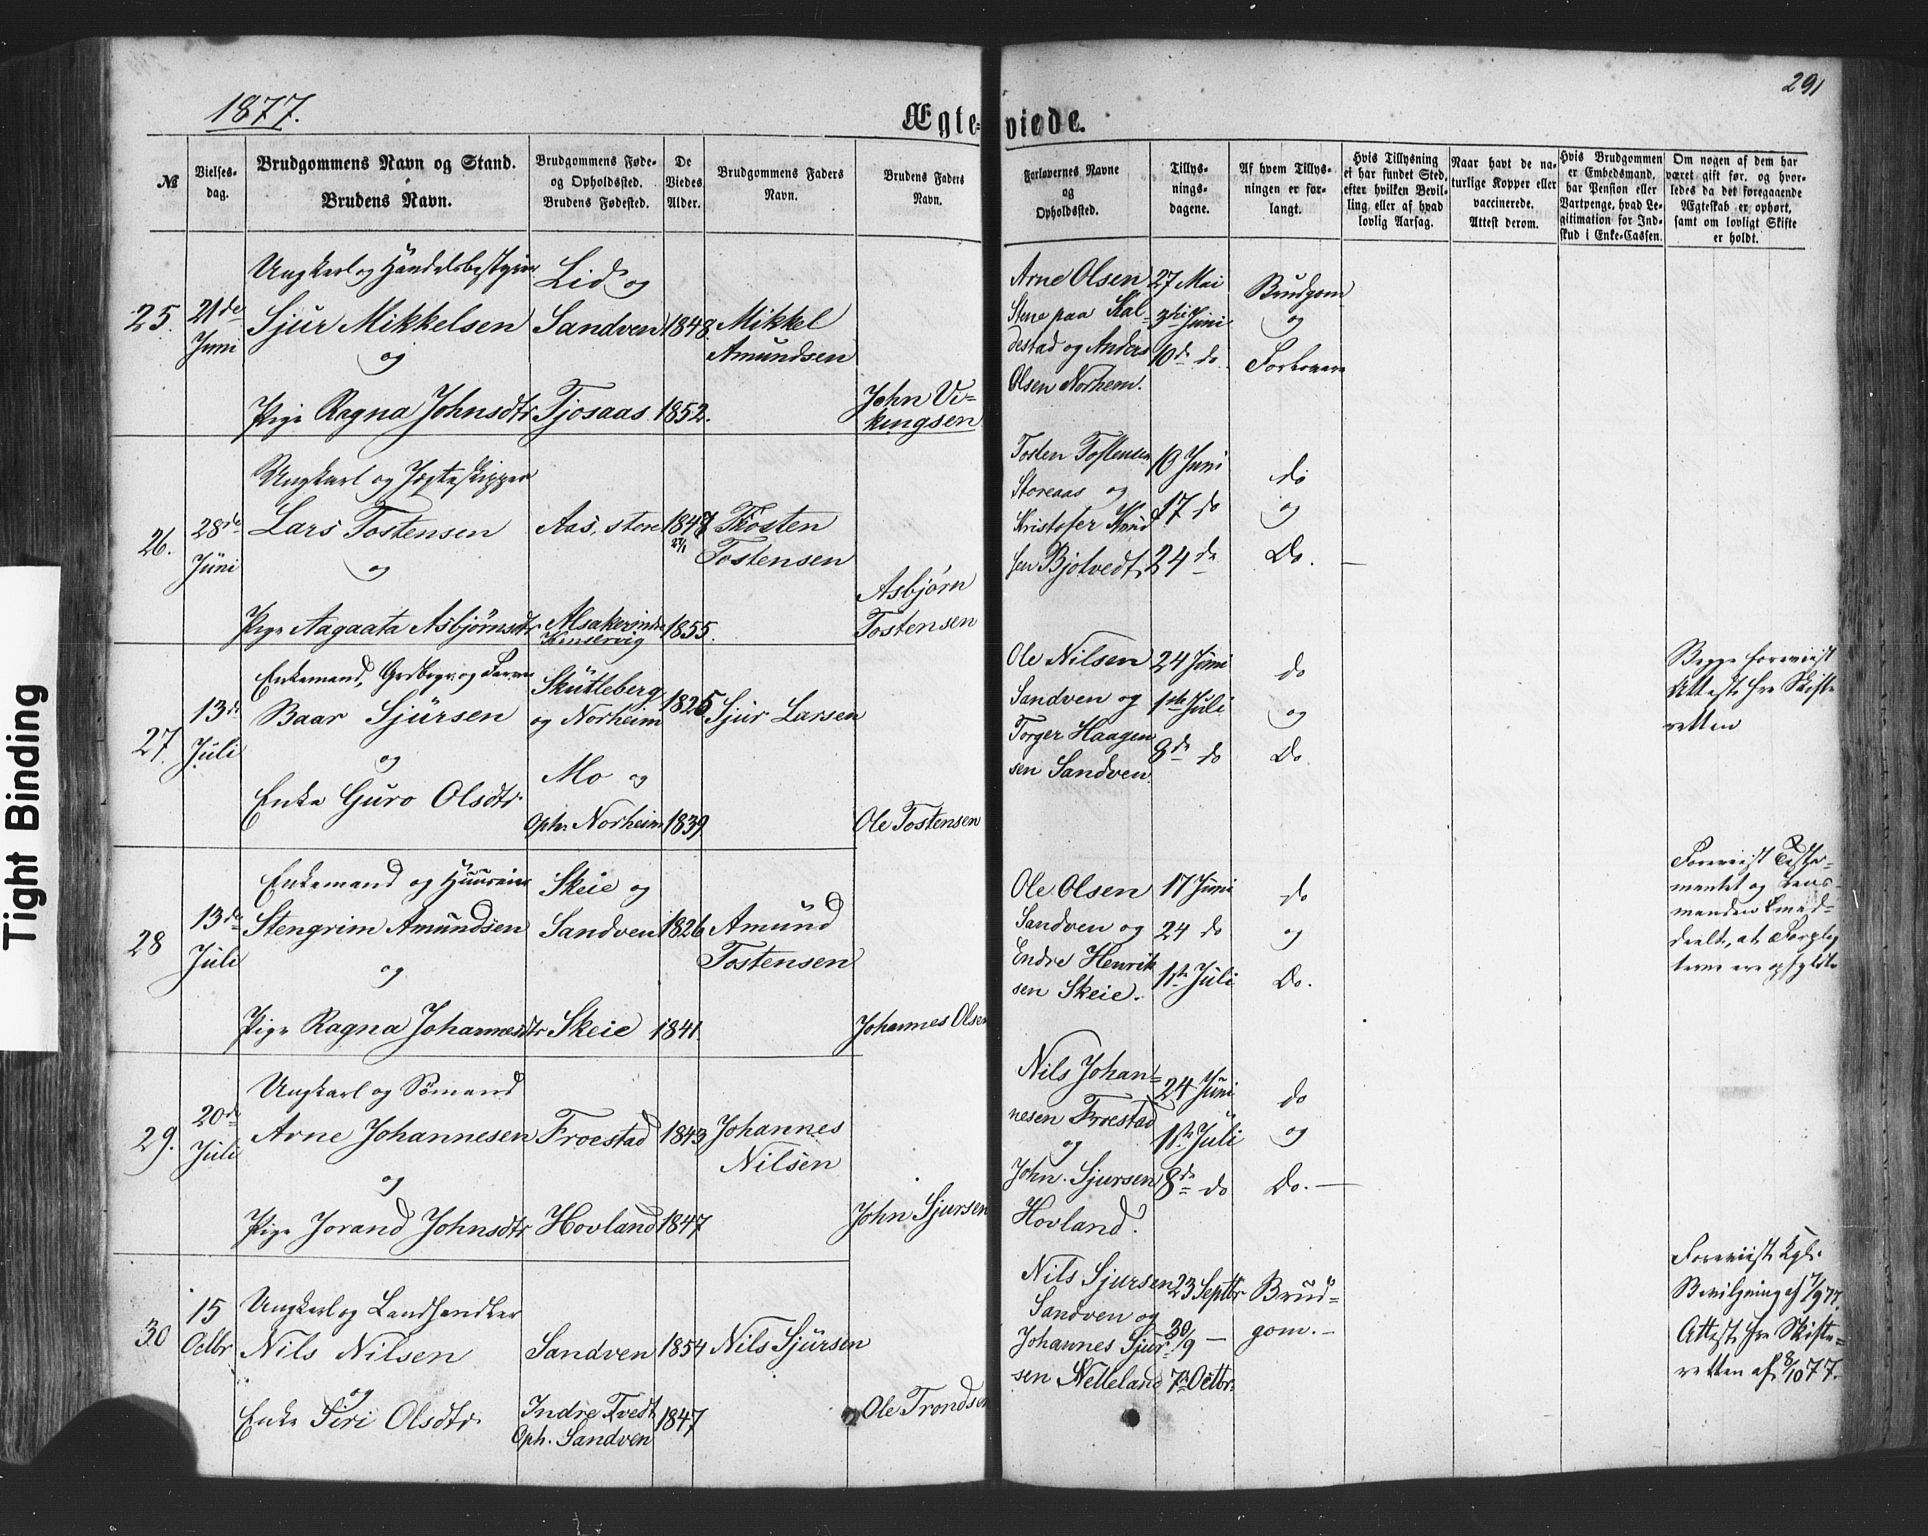 1877.
Ægte-viede.
291
№
Vielses-
dag.
Brudgommens Navn og Stand.
Brudens Navn.
Brudgommens Føde-
og Opholdssted.
Brudens Fødested.
De
Viedes
Alder.
Brudgommens Faders
Navn.
Brudens Faders
Navn.
Forlovernes Navne
og
Opholdssted.
Tillys-
nings-
dagene.
Af hvem Tillys-
ningen er for-
langt.
Hvis Tillysning
ei har fundet Sted,
efter hvilken Bevil-
ling eller af hvad
lovlig Aarsag.
Naar havt de na-
turlige Kopper eller
vaccinerede.
Attest derom.
Hvis Brudgommen
er Embedsmand,
har Pension eller
Vartpenge, hvad Le-
gitimation for Ind-
skud i Enke-Cassen.
Om nogen af dem har
været gift før, og hvor-
ledes da det foregaaende
Ægteskab er ophørt,
samt om lovligt Skifte
er holdt.
25.
21de
Juni
Ungkarl og Handelsbestyrer
Sjur Mikkelsen
og
Pige Ragna Johnsdtr
Lid og
Sandven
Tjosaas
1848.
1852.
Mikkel
Amundsen
John Vi-
kingsen
Arne Olsen
Stene paa Kal-
destad og Anders
Olsen Norheim.
27 Mai
3die Juni
10de do
Brudgom
og
Forlovere
26.
28de
Juni
Ungkarl og Jægteskipper
Lars Tostensen
og
Pige Aagaata Asbjørnsdtr
Aas, store
Alsaker indre
Kinservig
1847
27/1
1855.
Thosten
Tostensen
Asbjørn
Tostensen
Tosten Tostensen
Storeaas og
Kristofer Knud
sen Bjotvedt
10 Juni
17 do
24 de
do
og
Do.
27.
13de
Juli
Enkemand, Grdbrgr. og
Baar Sjursen
og
Enke Guro Olsdtr
Skutleberg
og Norheim
Mo og
Oph. Norheim
1825
1839.
Sjur Larsen
Ole Tostensen
Ole Nilsen
Sandven og
Torger Haagen
sen Sandven
24 Juni
1ste Juli
8de do
do
og
Do.
Begge foreviist
Attest fra Skifte
retten
28
13de
Juli
Enkemand og Huusmand
Stengrim Amundsen
og
Pige Ragna Johannesdtr
Skeie og
Sandven
Skeie
1826
1841.
Amund
Tostensen
Johannes Olsen
Ole Olsen
Sandven og
Endre Henrik
sen Skeie.
17 Juni
24 do
1ste Juli
do
og
Do.
Foreviist Testa-
mentet og Lens-
manden
deelt, at Forplig
terne ere opfyldte
29.
20de
Juli
Ungkarl og Sømand
Arne Johannesen
og
Pige Jorand Johnsdtr
Froestad
Hovland
1843
1847
Johannes
Nilsen
John Sjursen
Nils Johan-
nesen Froestad
og
John Sjursen
Hovland.
24 Juni
1ste Juli
8de do
do
og
Do.
30
15
Octbr
Ungkarl og Landhandler
Nils Nilsen
og
Enke Siri Olsdtr.
Sandven
Indre Tvedt
Oph. Sandven
1854
1847
Nils Sjursen
Ole Trondsen
Nils Sjursen
Sandven og
Johannes Sjur-
sen Netteland
23 Septbr
30/9 —
7de Octbr.
Brud-
gom.
Foreviist Kgl.
Bevilgning af 7/9 77.
Attest fra Skifte-
retten af 8/10 77.
Tight Binding